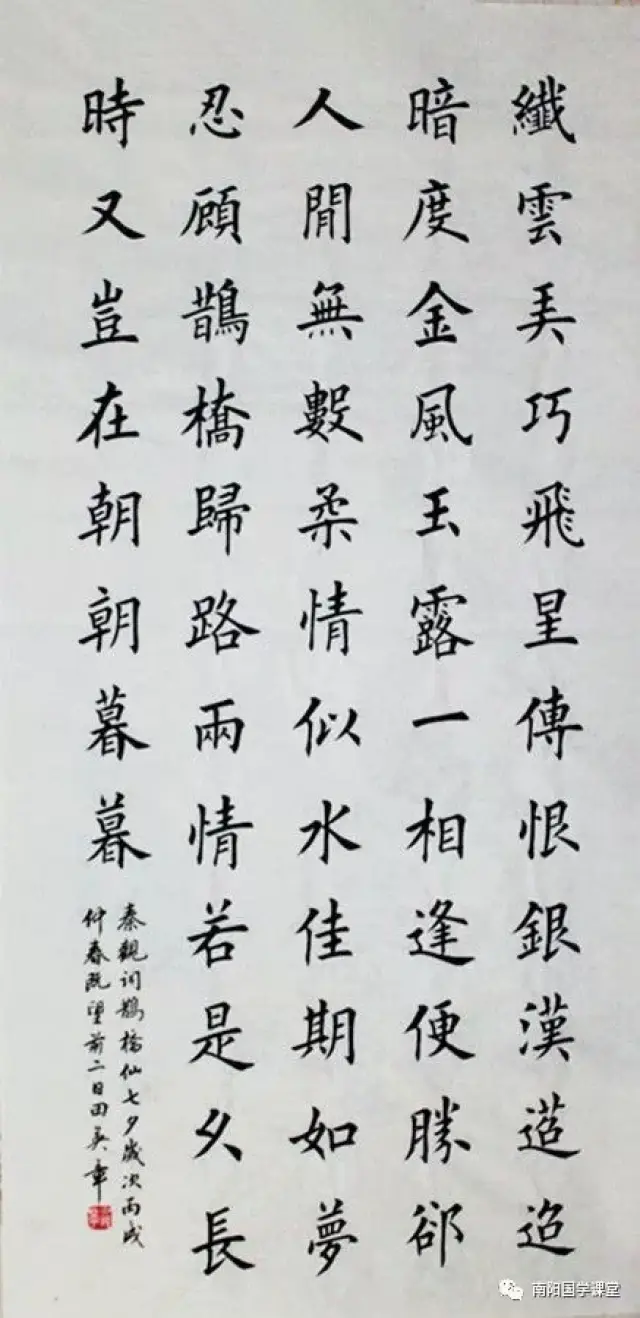 纖雲弄巧飛星傳恨銀漢迢迢
暗度金風玉露一相逢便勝郤
人閒無數柔情似水佳期如夢
忍顧鵲橋歸路兩情若是久長
時又豈在朝朝暮暮
秦觀词鵲橋仙七夕歲次丙戌
仲春既望前二日田英章
南阳国学课堂